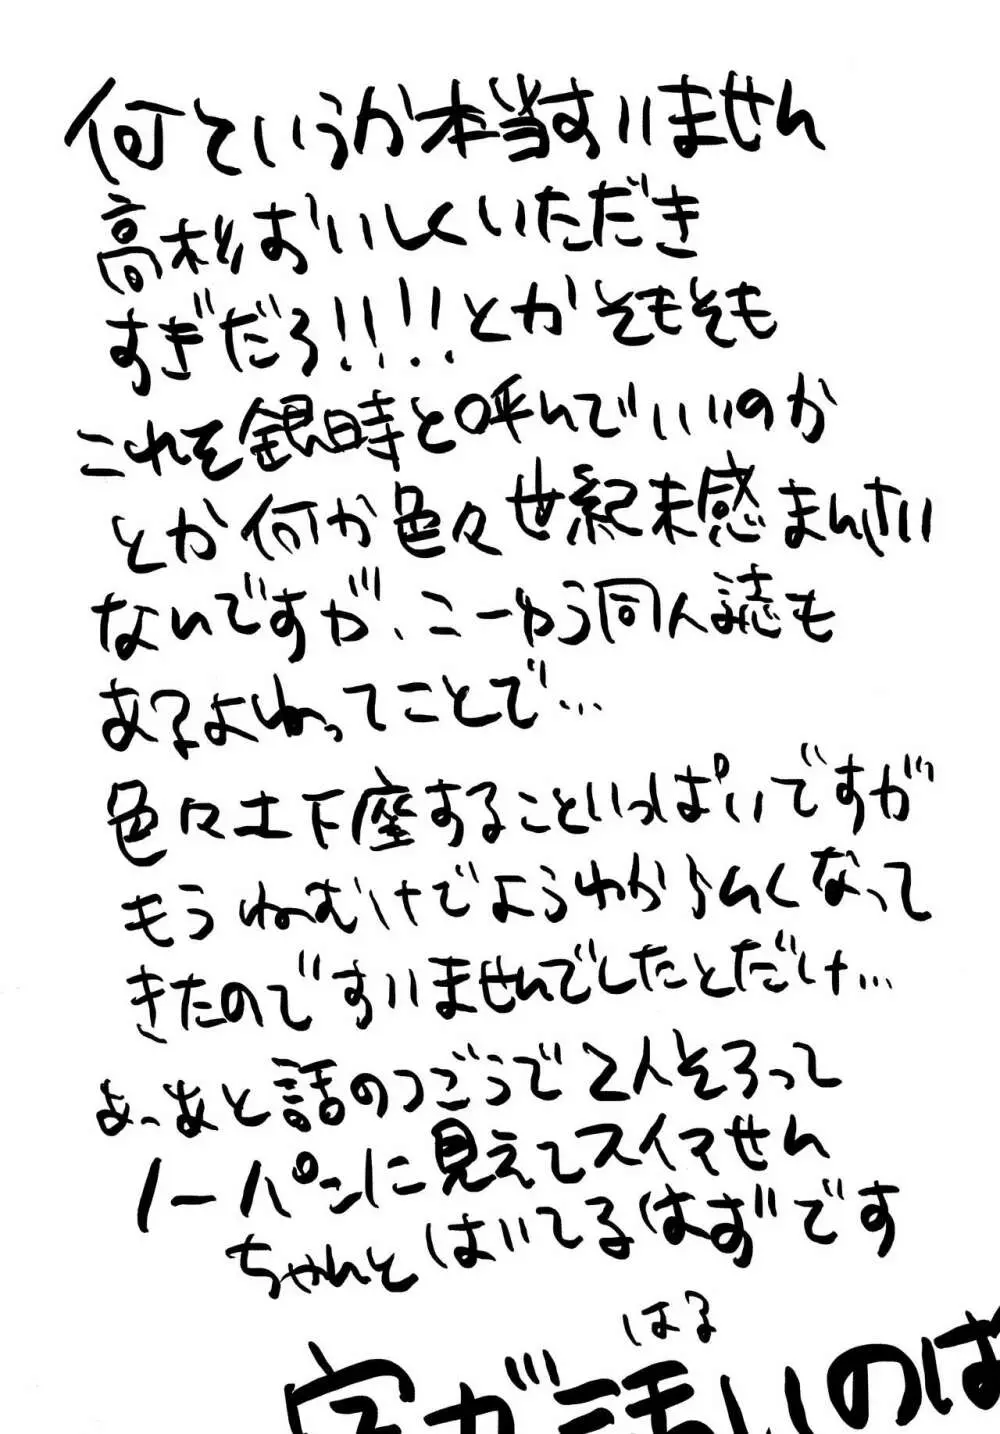 何ていうか本当すいません
高杉おいしくいただき
すぎだろ!!!!とかそもそも
これを銀時と呼んでいいのか
とか何か色々世紀末感まんさい
ないですが、こーゆう同人誌も
あるよねってことで…
色々土下座することいっぱいですが
もうねむけでようわからんくなって
きたのですいませんでしたとだけ…
あとはなしのつごうで2人そろって
ノーパンに見えてスイマせん
ちゃんとはいてるはずです
はる
字が
いのは